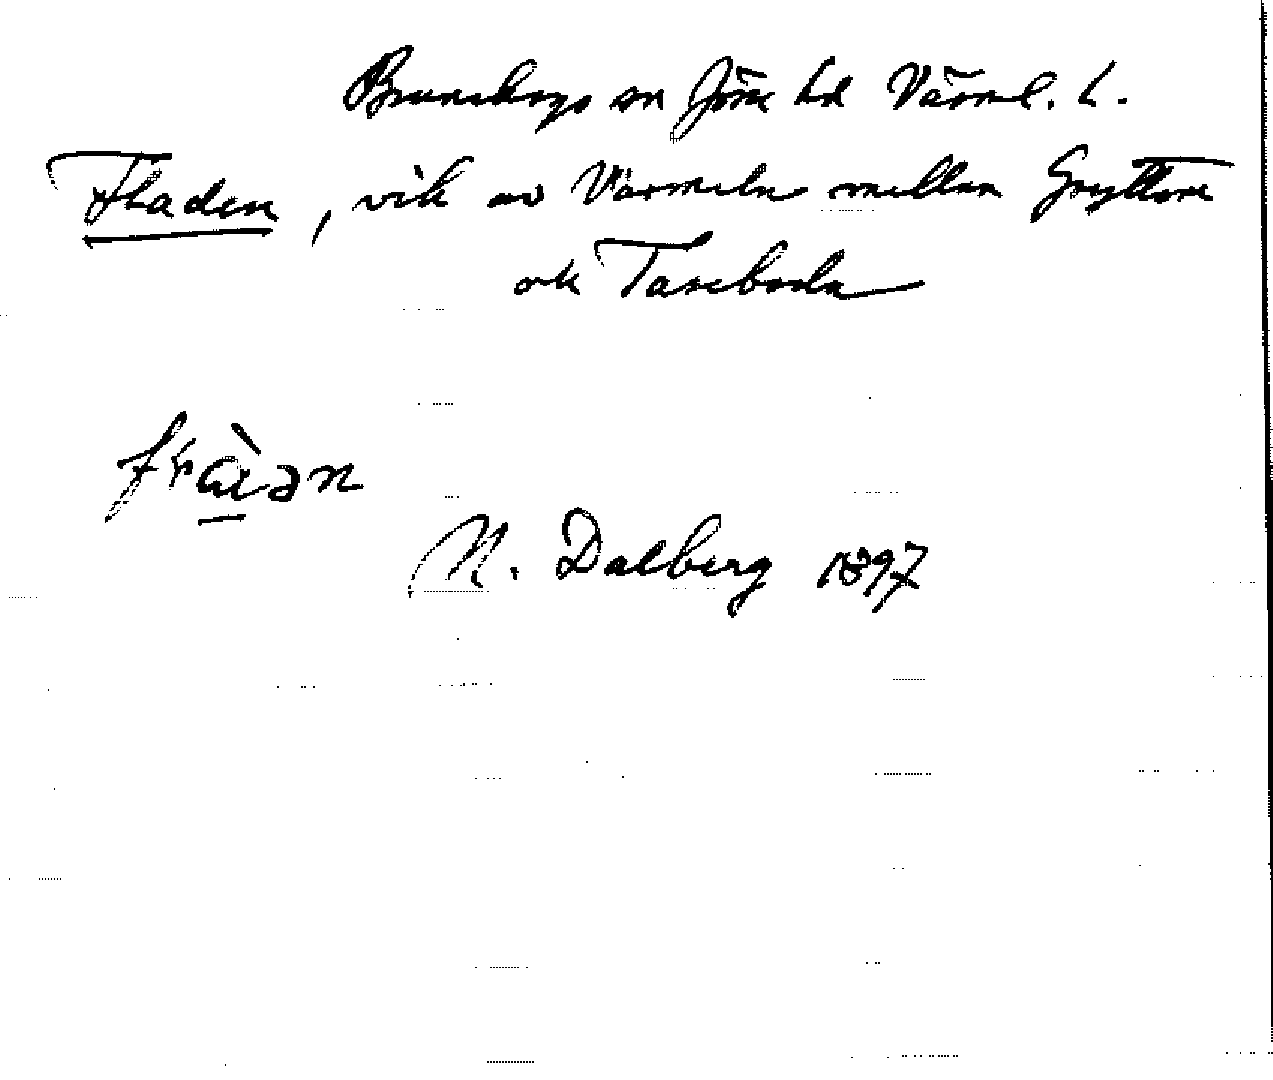 Brunskogs sn Jösse hd Värml. L.
Fladen, vik av Värmeln mellan Gryttom
ok Taseboda
N. Dalberg 1897